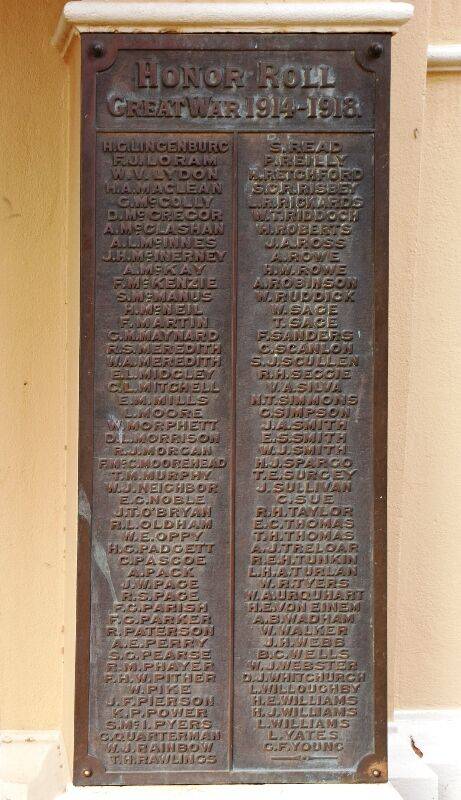 HONOR ROLL
GREAT WAR 1914-1918.
H.G.LINGENBURG
F.J.LORAM
W.V.LYDON
H.A.MACLEAN
G.McCOLLY
D.McGREGOR
A.McGLASHAN
A.L.McINNES
J.H.McINERNEY
A.McKAY
F.McKENZIE
S.McMANUS
H.McNEIL
F.MARTIN
C.M.MAYNARD
R.S.MEREDITH
W.A.MEREDITH
E.L.MIDGLEY
C.L.MITCHELL
E.M.MILLS
L.MOORE
W.MORPHETT
D.L.MORRISON
R.J.MORGAN
F.McC.MOOREHEAD
T.M.MURPHY
W.J.NEIGHBOR
E.C.NOBLE
J.T.O'BRYAN
R.L.OLDHAM
W.E.OPPY
H.C.PADGETT
C.PASCOE
A.PACK
J.W.PAGE
R.S.PAGE
F.G.PARISH
F.G.PARKER
R.PATERSON
A.E.PERRY
S.G.PEARSE
R.M.PHAYER
F.H.W.PITHER
W.PIKE
J.F.PIERSON
K.P.POWER
S.McI.PYERS
C.QUARTERMAN
W.J.RAINBOW
T.H.RAWLINGS
S.READ
P.REILLY
H.RETCHFORD
S.C.R.RISBEY
L.R.RICKARDS
W.T.RIDDOCH
H.ROBERTS
J.A.ROSS
A.ROWE
H.W.ROWE
A.ROBINSON
W.RUDDICK
W.SAGE
T.SAGE
F.SANDERS
C.SCANLON
S.J.SCULLEN
R.H.SEGGIE
V.A.SILVA
N.T.SIMMONS
C.SIMPSON
J.A.SMITH
E.S.SMITH
W.J.SMITH
H.J.SPARGO
T.E.SURGEY
J.SULLIVAN
C.SUE
R.H.TAYLOR
E.C.THOMAS
T.H.THOMAS
A.J.TRELOAR
R.E.H.TUNKIN
L.H.A.TURLAN
W.R.TYERS
W.A.URQUHART
H.E.VON EINEM
A.B.WADHAM
W.WALKER
J.H.WEBB
B.C.WELLS
W.J.WEBSTER
D.J.WHITCHURCH
L.WILLOUGHBY
H.E.WILLIAMS
H.J.WILLIAMS
L.WILLIAMS
L.YATES
C.F.YOUNG